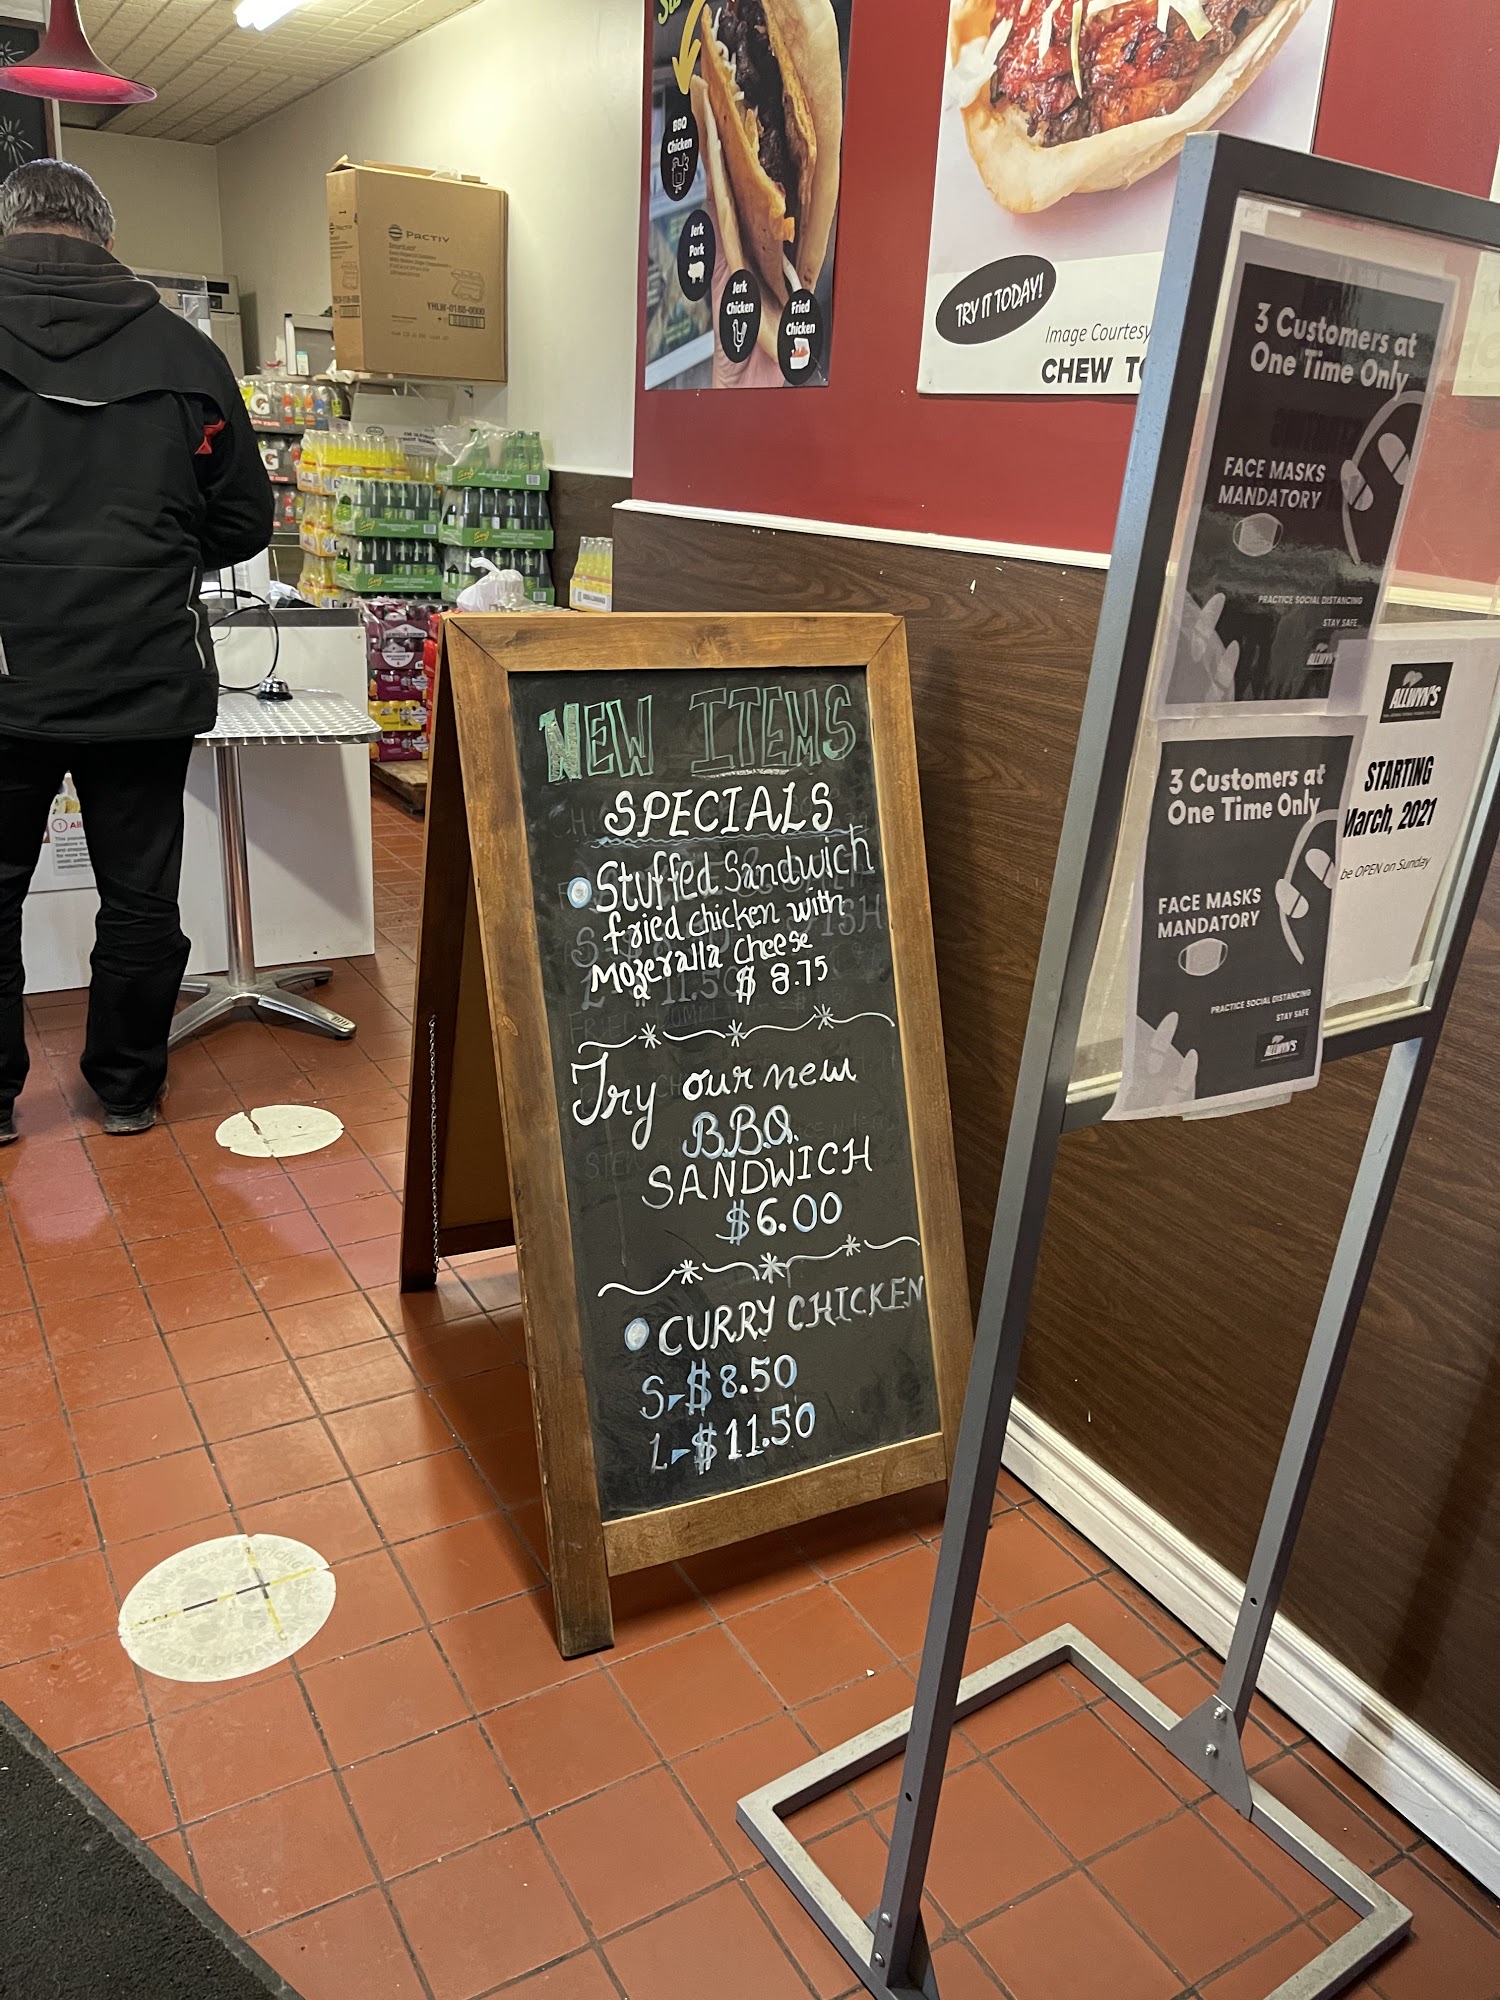 NEW ITEMS
SPECIALS
Stuffed Sandwich
fried chicken with
mozeralla cheese
$ 8.75
Try our new
B.B.Q.
SANDWICH
$6.00
CURRY CHICKEN
S-$8.50
L-$11.50
BBQ
Chicken
Jerk
Pork
Jerk
Chicken
Fried
Chicken
TRY IT TODAY!
Image Courtesy
CHEW
3 Customers at
One Time Only
FACE MASKS
MANDATORY
PRACTICE SOCIAL DISTANCING
STAY SAFE
ALLWYN'S
3 Customers at
One Time Only
FACE MASKS
MANDATORY
PRACTICE SOCIAL DISTANCING
STAY SAFE
ALLWYN'S
ALLWYN'S
STARTING
March, 2021
be OPEN on Sunday
PACTIV
YHLW-0188-0000
G
G